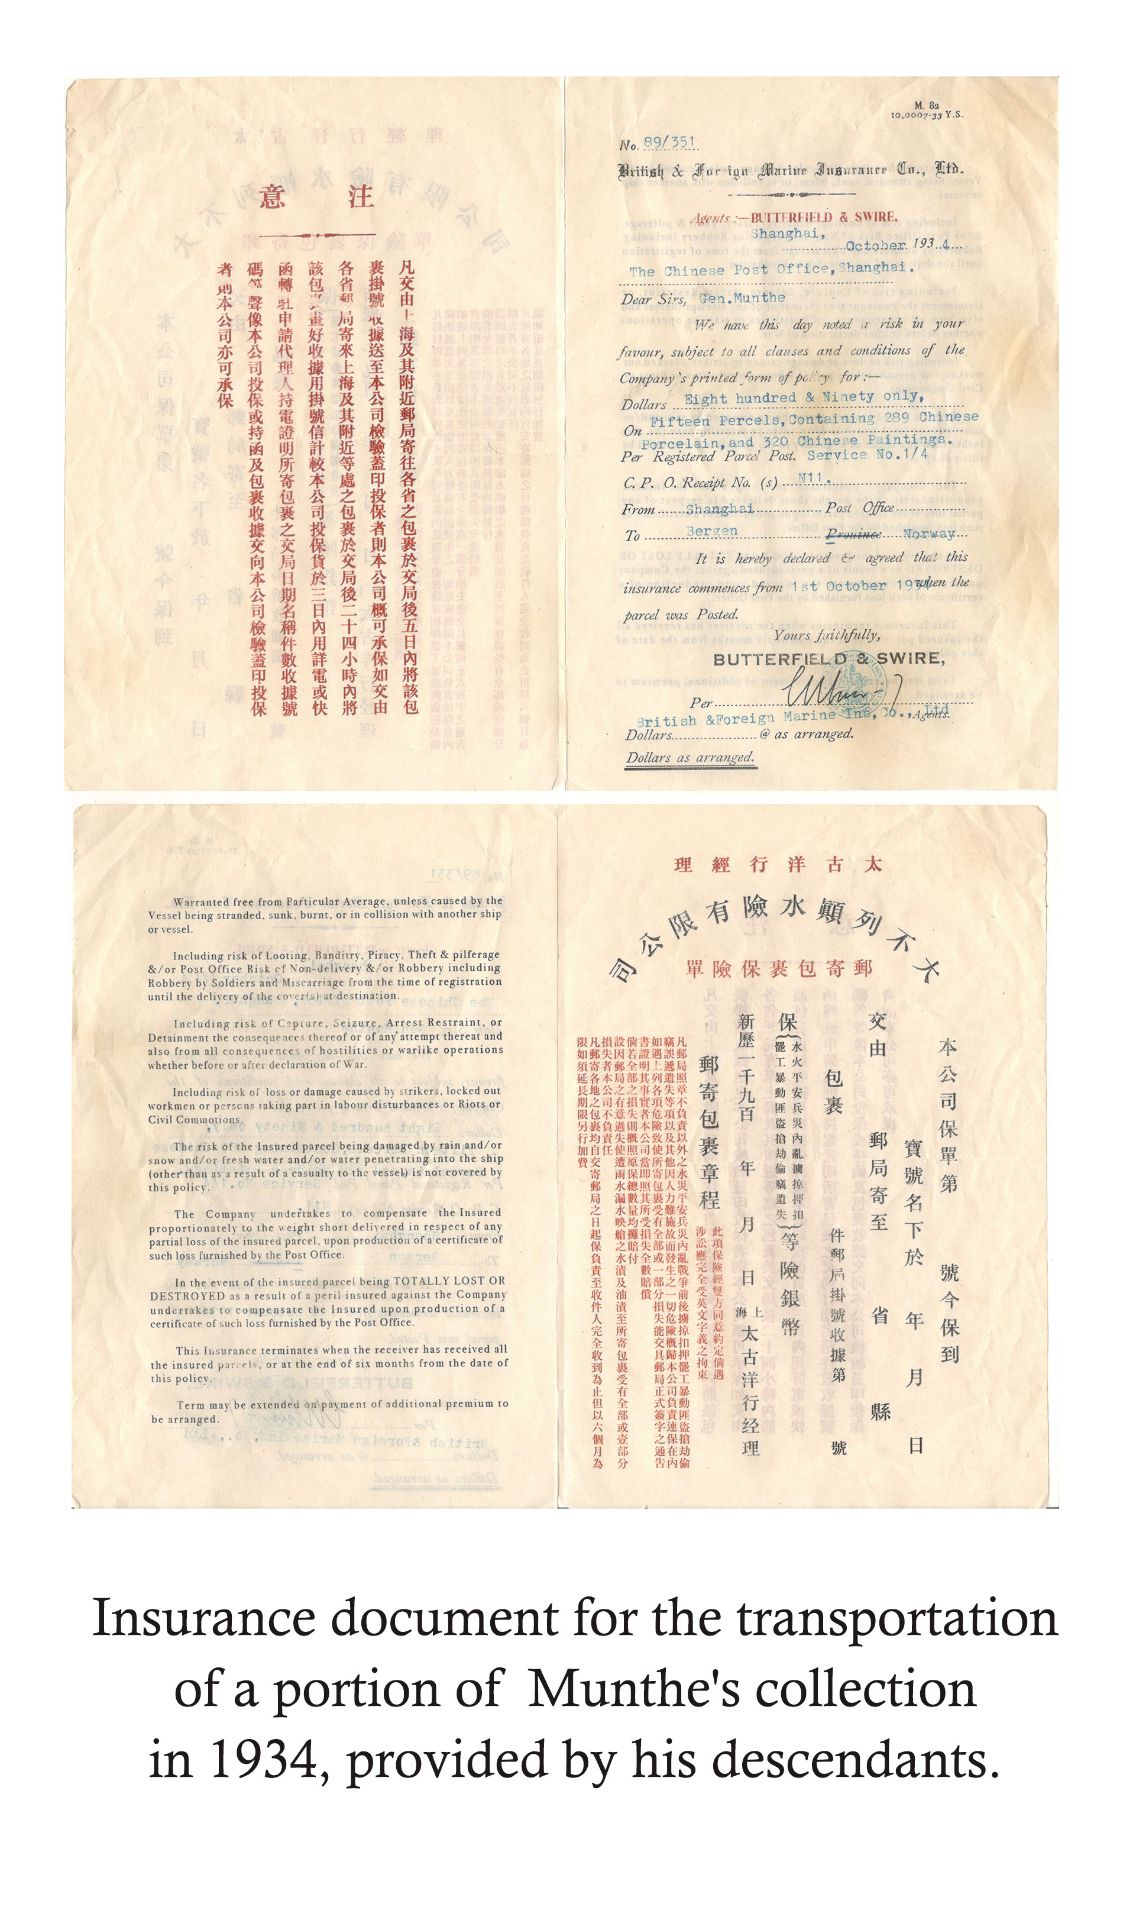 意 注
凡交由上海及其附近郵局寄往各省之包裹於交局後五日內將該包
裹掛號收據送至本公司檢驗蓋印投保者則本公司概可承保如交由
各省郵局寄來上海及其附近等處之包裹於交局後二十四小時內將
該包裹畫好收據用掛號信計較本公司投保貨於三日內用詳電或快
函轉駐申請代理人持電證明所寄包裹之交局日期名稱件數收據號
碼等聲像本公司投保或持函及包裹收據交向本公司檢驗蓋印投保
者則本公司亦可承保
M. 82
10,0007-33 Y.S.
No. 89/351
British & Foreign Marine Insurance Co., Ltd.
Agents :—BUTTERFIELD & SWIRE,
Shanghai,
October 1934
The Chinese Post Office, Shanghai.
Dear Sirs, Gen.Munthe
We have this day noted a risk in your
favour, subject to all clauses and conditions of the
Company's printed form of policy for :—
Dollars Eight hundred & Ninety only,
On Fifteen Percels, Containing 289 Chinese
Porcelain, and 320 Chinese Paintings.
Per Registered Parcel Post. Service No.1/4
C. P. O. Receipt No. (s) N11.
From Shanghai Post Office
To Bergen Province Norway
It is hereby declared & agreed that this
insurance commences from 1st October 1934 when the
parcel was Posted.
Yours faithfully,
BUTTERFIELD & SWIRE,
Per
British &Foreign Marine Ins, Co., Ltd Agents.
Dollars @ as arranged.
Dollars as arranged.
Warranted free from Particular Average, unless caused by the
Vessel being stranded, sunk, burnt, or in collision with another ship
or vessel.
Including risk of Looting, Banditry, Piracy, Theft & pilferage
&/or Post Office Risk of Non-delivery &/or Robbery including
Robbery by Soldiers and Miscarriage from the time of registration
until the delivery of the cover(s) at destination.
Including risk of Capture, Seizure, Arrest Restraint, or
Detainment the consequences thereof or of any attempt thereat and
also from all consequences of hostilities or warlike operations
whether before or after declaration of War.
Including risk of loss or damage caused by strikers, locked out
workmen or persons taking part in labour disturbances or Riots or
Civil Commotions.
The risk of the Insured parcel being damaged by rain and/or
snow and/or fresh water and/or water penetrating into the ship
(other than as a result of a casualty to the vessel) is not covered by
this policy.
The Company undertakes to compensate the Insured
proportionately to the weight short delivered in respect of any
partial loss of the insured parcel, upon production of a certificate of
such loss furnished by the Post Office.
In the event of the insured parcel being TOTALLY LOST OR
DESTROYED as a result of a peril insured against the Company
undertakes to compensate the Insured upon production of a
certificate of such loss furnished by the Post Office.
This Insurance terminates when the receiver has received all
the insured parcels, or at the end of six months from the date of
this policy.
Term may be extended on payment of additional premium to
be arranged.
理經行洋古太
司公限有險水顚列不大
單險保裹包寄郵
本公司保單第 號今保到
寶號名下於 年 月 日
交由 郵局寄至 省 縣
包裹 件郵局掛號收據第 號
保 水火平安兵災內亂擄掠押扣
罷工暴動匪盜搶劫偷竊遺失 等險銀幣
新歷一千九百 年 月 日 上海 太古洋行经理
郵寄包裹章程 此項保險經雙方同意約定倘遇
涉訟應完全受英文字義之拘束
凡郵局照章不負責以外之水災平安兵災內亂戰爭前後擄掠扣押罷工暴動匪盜搶劫偷
竊誤遞遺失等項以及其他因人力難施故而發生之一切危險概歸本公司負責連保在內
如遇上列各項危險致使所寄包裹受有全部或一部分損失能交具郵局正式簽字之通告
書證明其事實者本公司當即照其所受損失全數賠償
倘若全部之損失則概照原保總數量均攤賠付
設因郵局之有意過失使遭雨水漏水映艙之水漬及油漬至所寄包裹受有全部或壹部分
損失者本公司不負責任
凡郵寄各地之包裹均自交寄郵局之日起保負責至收件人完全收到為止但以六個月為
限如須延長期限另行加費
Insurance document for the transportation
of a portion of Munthe's collection
in 1934, provided by his descendants.